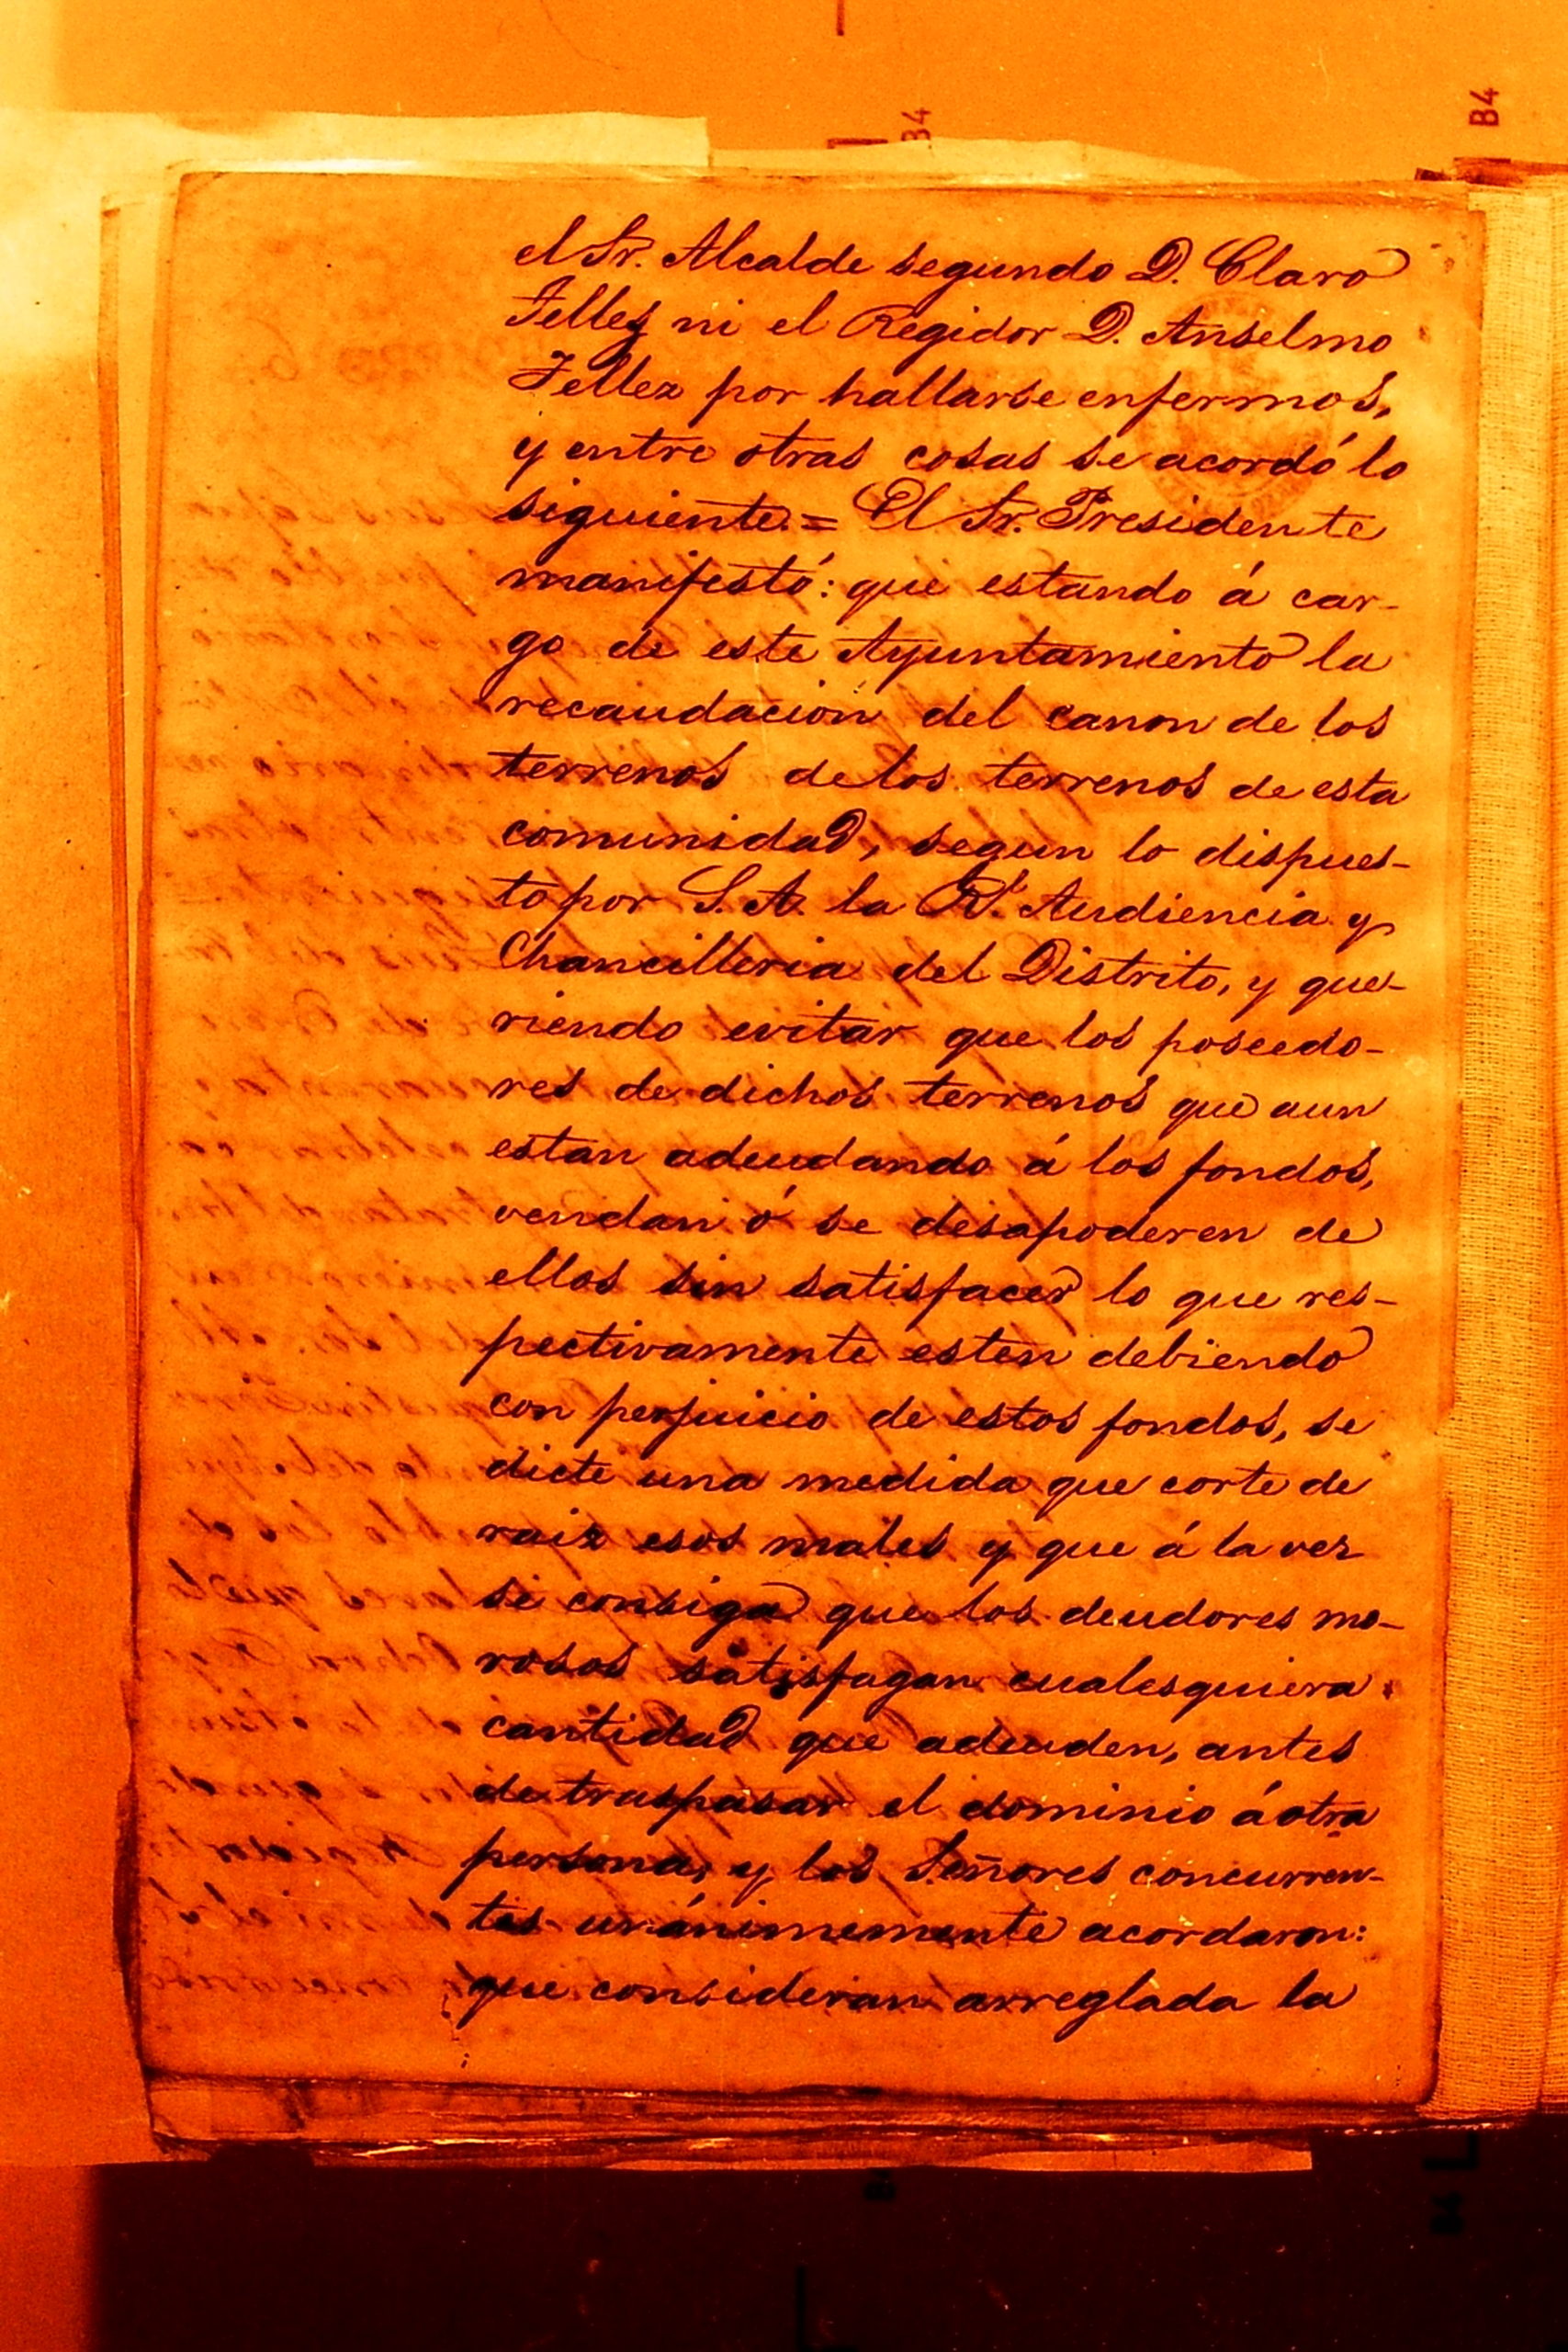 el Sr. Alcalde segundo D. Claro
Tellez ni el Regidor D. Anselmo
Tellez por hallarse enfermos,
y entre otras cosas se acordó lo
siguiente = El Sr. Presidente
manifestó: que estando á car-
go de este Ayuntamiento la
recaudacion del canon de los
terrenos de los terrenos de esta
comunidad, segun lo dispues-
to por S. A. la Rl. Audiencia y
Chancilleria del Distrito, y que-
riendo evitar que los poseedo-
res de dichos terrenos que aun
estan adeudando á los fondos,
vendan ó se desapoderen de
ellos sin satisfacer lo que res-
pectivamente esten debiendo
con perjuicio de estos fondos, se
dicte una medida que corte de
raiz esos males y que á la vez
se consiga que los deudores mo-
rosos satisfagan cualesquiera
cantidad que adeuden, antes
de traspasar el dominio á otra
persona; y los Señores concurren-
tes unánimemente acordaron:
que consideran arreglada la
B4
B4
B4